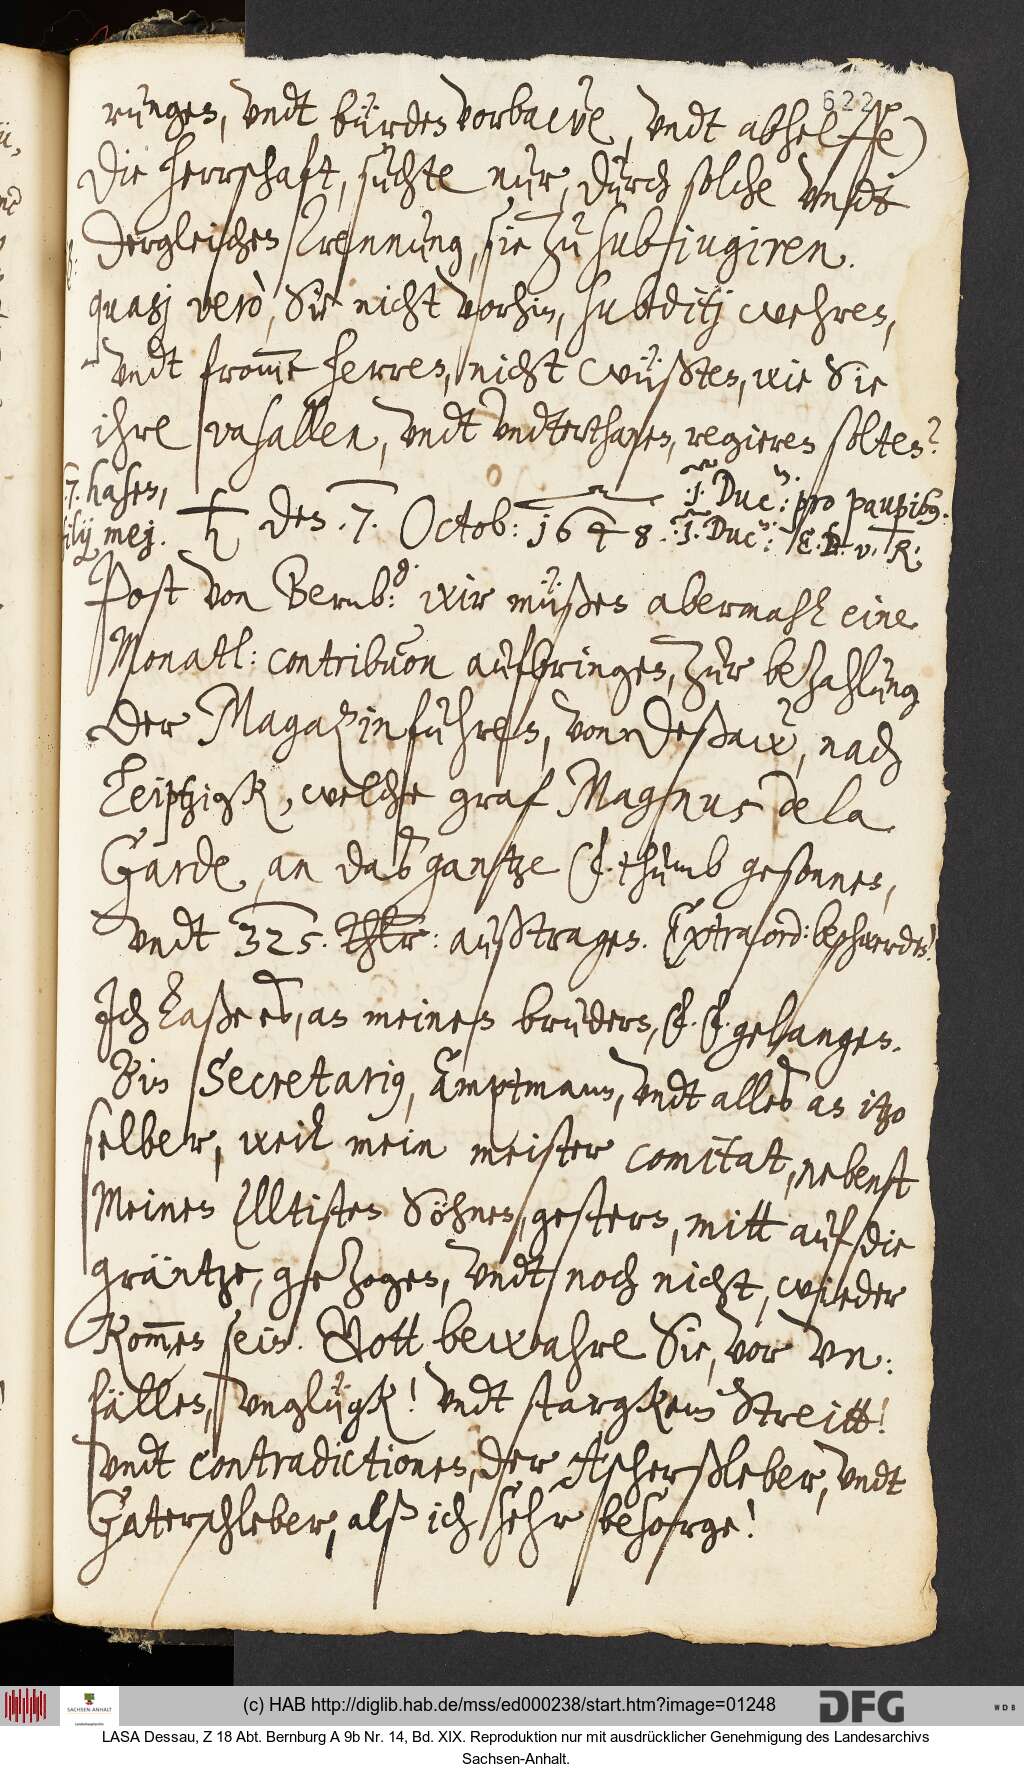 622
rungen, vndt bürden vorbawe, vndt abhelffe)
die herrschaft, suchte nur, durch solche vndt
dergleichen Trennung, sie zu subjugiren.
quasj verò, Sie nicht vorhin, subditj wehren,
vndt fromme herren, nicht wüßten, wie Sie
ihre vasallen, vndt vndterthanen, regieren solten?
7. hasen,
filij mej.
♄ den .7. Octob: 1648. .1. Duc: pro paupib9.
.1. Duc: E. v. R.
Post von Bernb: wir müßen abermahl eine
Monatl: contribuon aufbringen, zur bezahlung
der Magazinfuhren, von Deßaw, nach
Leiptzigk, welche graf Magnus de la
Garde, an das gantze F. thumb gesonnen,
vndt 325. Thlr: außtragen. Extraord: beschwerde!
Ich laße es, an meinen bruder, F. F. gelangen.
Bin Secretarius, Amptmann, vndt alles an itzo
selber, weil mein meister comitat, nebenst
Meinen Elltisten Söhnen, gestern, mitt auf die
gräntze, gezogen, vndt noch nicht, wieder
kommen sein. Gott bewahre Sie, vor vn:
fällen, vnglügk! vndt stargkem Streitt!
vndt contradictionen, der Aschersleber, vndt
Gaterschleber, alß ich sehr besorge!
(c) HAB http://diglib.hab.de/mss/ed000238/start.htm?image=01248
SACHSEN-ANHALT
DFG
WDB
LASA Dessau, Z 18 Abt. Bernburg A 9b Nr. 14, Bd. XIX. Reproduktion nur mit ausdrücklicher Genehmigung des Landesarchivs
Sachsen-Anhalt.